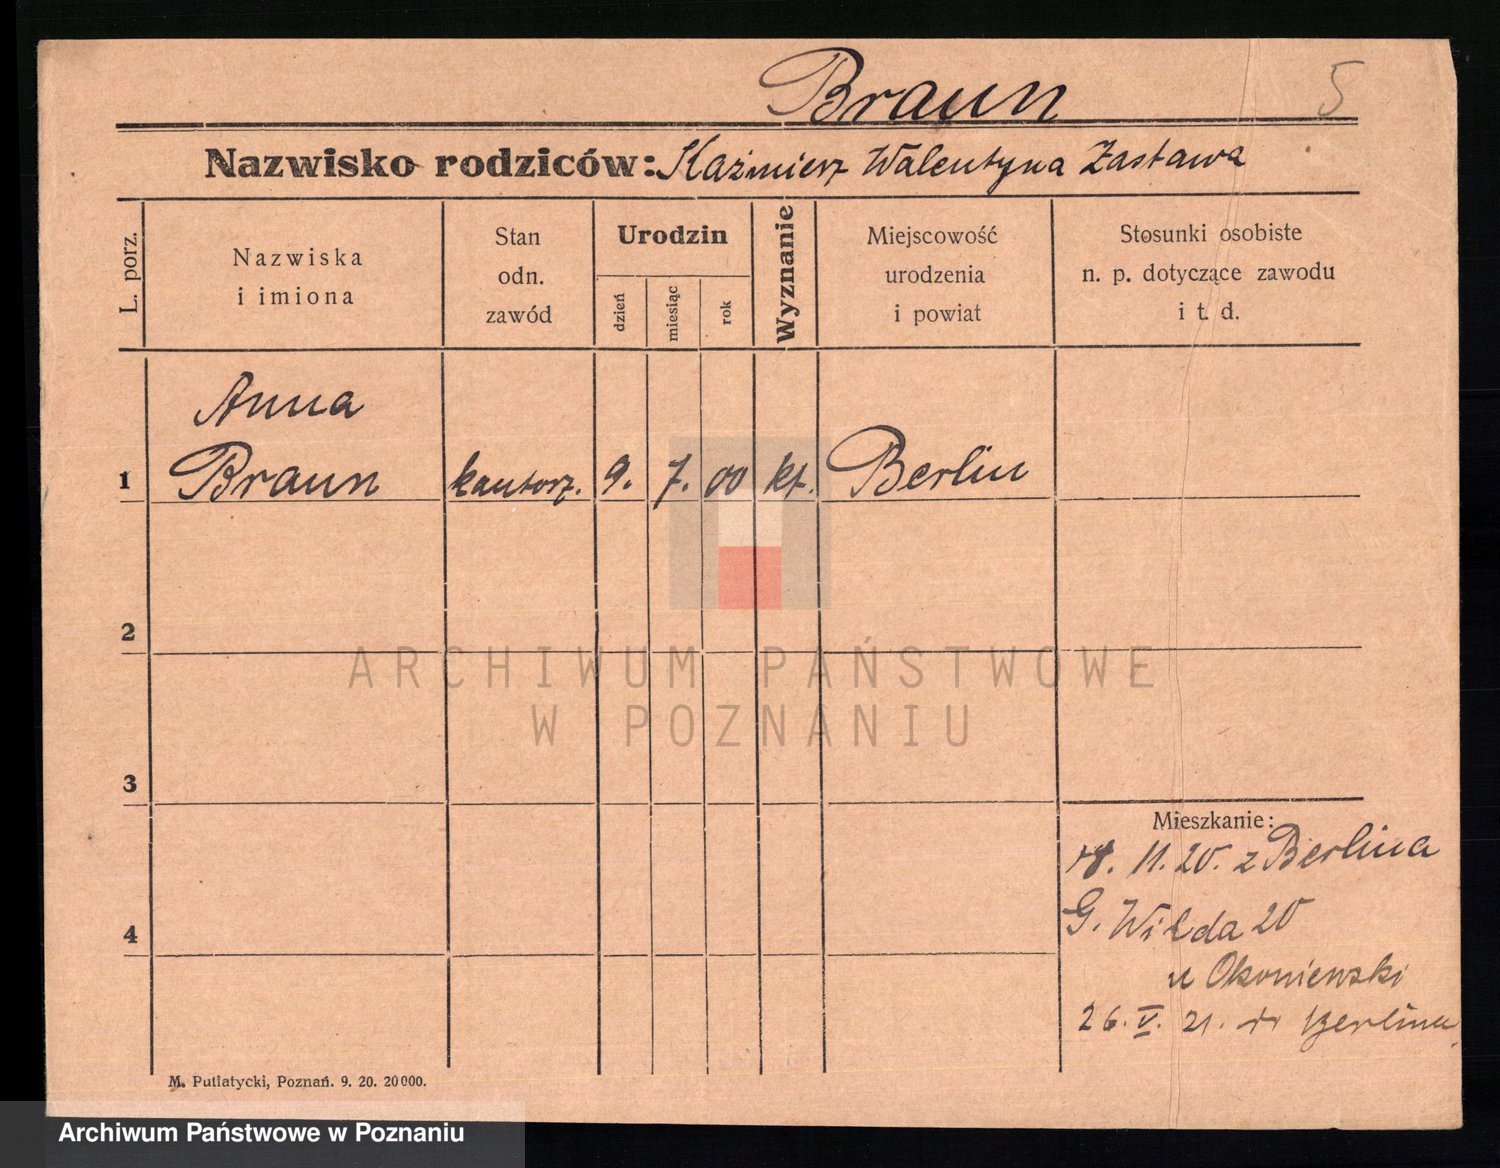 Braun 5
Nazwisko rodziców: Kaźmierz Walentyna Zastawa
L. porz.
Nazwiska
i imiona
Stan
odn.
zawód
Urodzin
dzień
miesiąc
rok
Wyznanie
Miejscowość
urodzenia
i powiat
Stosunki osobiste
n. p. dotyczące zawodu
i t. d.
Anna
1 Braun kantorz. 9. 7. 00 kt. Berlin
2
3
4
Mieszkanie:
11. 20. z Berlina
G. Wilda 20
u Okoniewski
26. V. 21. do Berlina
M. Putiatycki, Poznań. 9. 20. 20000.
ARCHIWUM PAŃSTWOWE
W POZNANIU
Archiwum Państwowe w Poznaniu